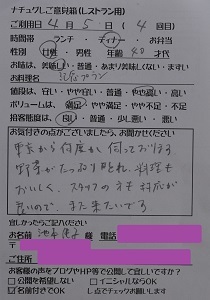 ナチュグレご意見箱(レストラン用)
ご利用日 4月5日(4回目)
時間帯 ランチ・ディナー・お弁当
性別 女性・男性 年齢 40才代
お味は、美味しい・普通・あまり美味しくない・まずい
お料理名 プラン
値段は、安い・やや安い・普通・やや高い・高い
ボリュームは、満足・やや満足・やや不足・不足
接客態度は、良い・普通・少し悪い・悪い
お気付きの点がございましたら、お聞かせください
東京から何度か、伺っております。
野菜がたっぷりとれ、お料理も
おいしく、スタッフの方も対応が
良いので、また来たいです。
宜しかったらご記入ください
お名前 様 電話
〒
ご住所
お客様の声をブログやHP等で公開して宜しいですか?
□公開を希望しない □イニシャルならOK
☑名前付きでOK レ点でチェックお願いします